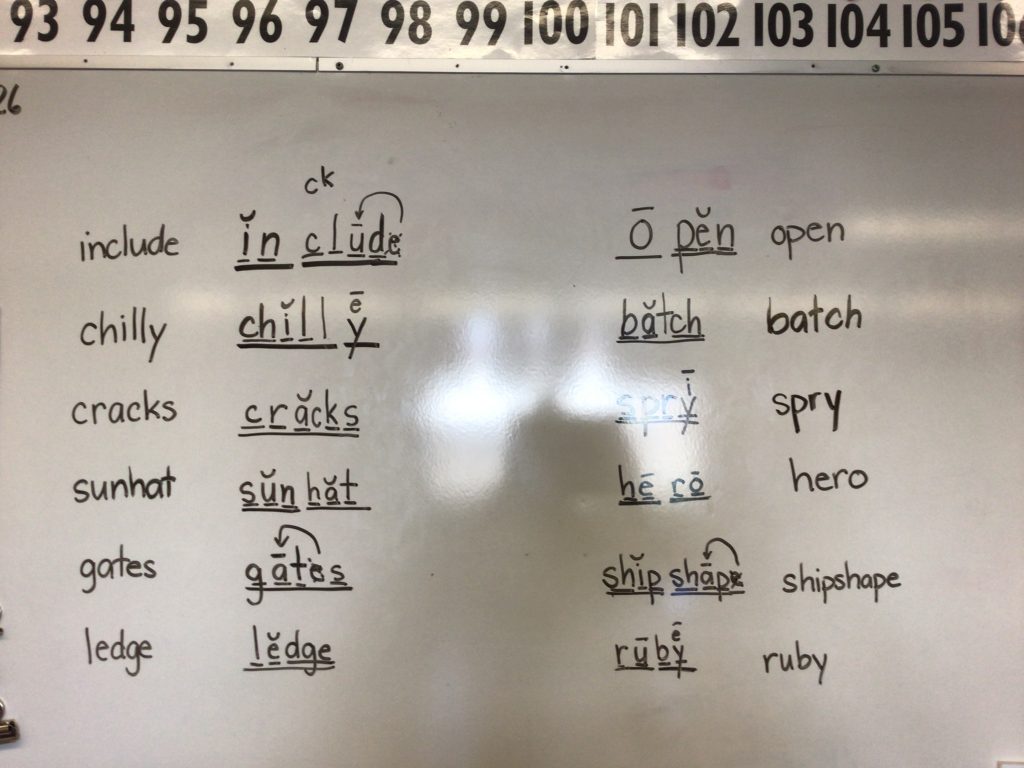 93 94 95 96 97 98 99 100 101 102 103 104 105 106
26
ck
include ĭn clūde ō pĕn open
chilly chĭll ȳ ē bătch batch
cracks crăcks sprȳ ī spry
sunhat sŭn hăt hē rō hero
gates gātes shĭp shāpe shipshape
ledge lĕdge rūby ē ruby